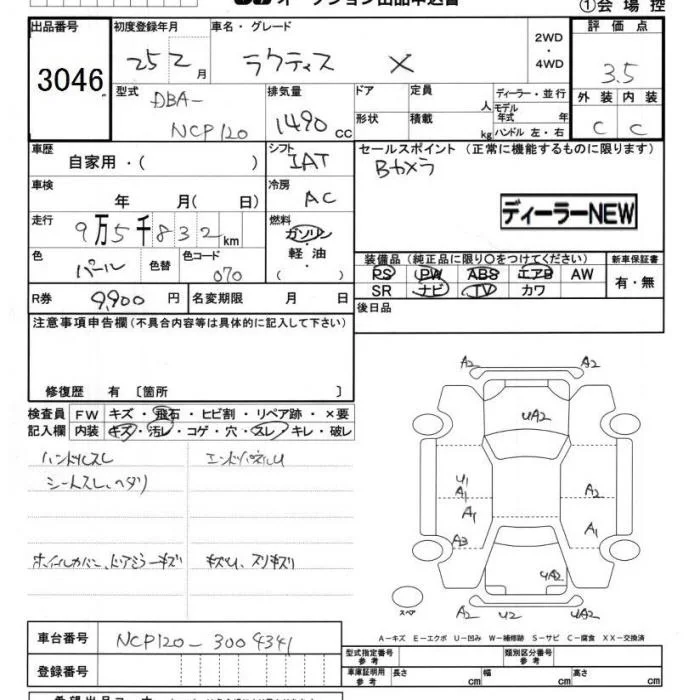 オークション出品申込書
①会場控
出品番号 初度登録年月 車名・グレード 評価点
3046 25 2月 ラクティス X 2WD・4WD 3.5
型式 排気量 ドア 定員 人 ディーラー・並行 外装 内装
DBA-NCP120 1490cc 形状 積載 kg モデル年式 年 ハンドル 左・右 C C
車歴 シフト セールスポイント (正常に機能するものに限ります)
自家用・( ) IAT Bカメラ
車検 冷房
年 月( 日) AC ディーラーNEW
走行 燃料
9万5千832km ガソリン・軽油・( )
色 色替 色コード 装備品(純正品に限り○をつけてください) 新車保証書
パール 070 PS PW ABS エアB AW 有・無
SR ナビ TV カワ
R券 9,900円 名変期限 月 日 後日品
注意事項申告欄(不具合内容等は具体的に記入して下さい)
修復歴 有 〔箇所 〕
検査員 FW キズ・飛石・ヒビ割・リペア跡・×要
記入欄 内装 キズ・汚レ・コゲ・穴・スレ・キレ・破レ
ハンドルスレ
シートスレ、ヘタリ
A2 A2
UA2
U1
A1 A2
A1
A1
A3
UA2
スペア A2 U2 UA2
A-キズ E-エクボ U-凹み W-補修跡 S-サビ C-腐食 XX-交換済
車台番号 NCP120-3004341
型式指定番号 参考 類別区分番号 参考
登録番号
車庫証明用 参考 長さ cm 幅 cm 高さ cm